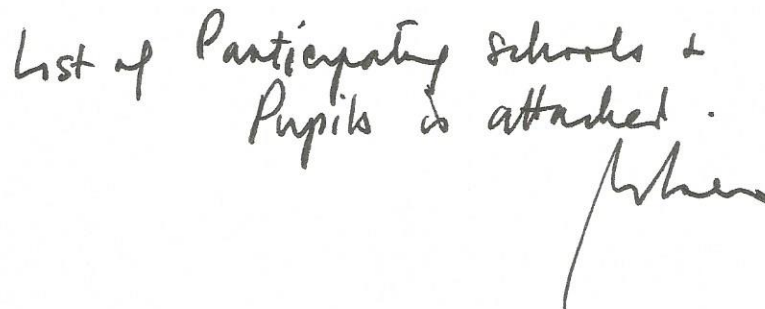 List of Participating schools &
Pupils is attached.